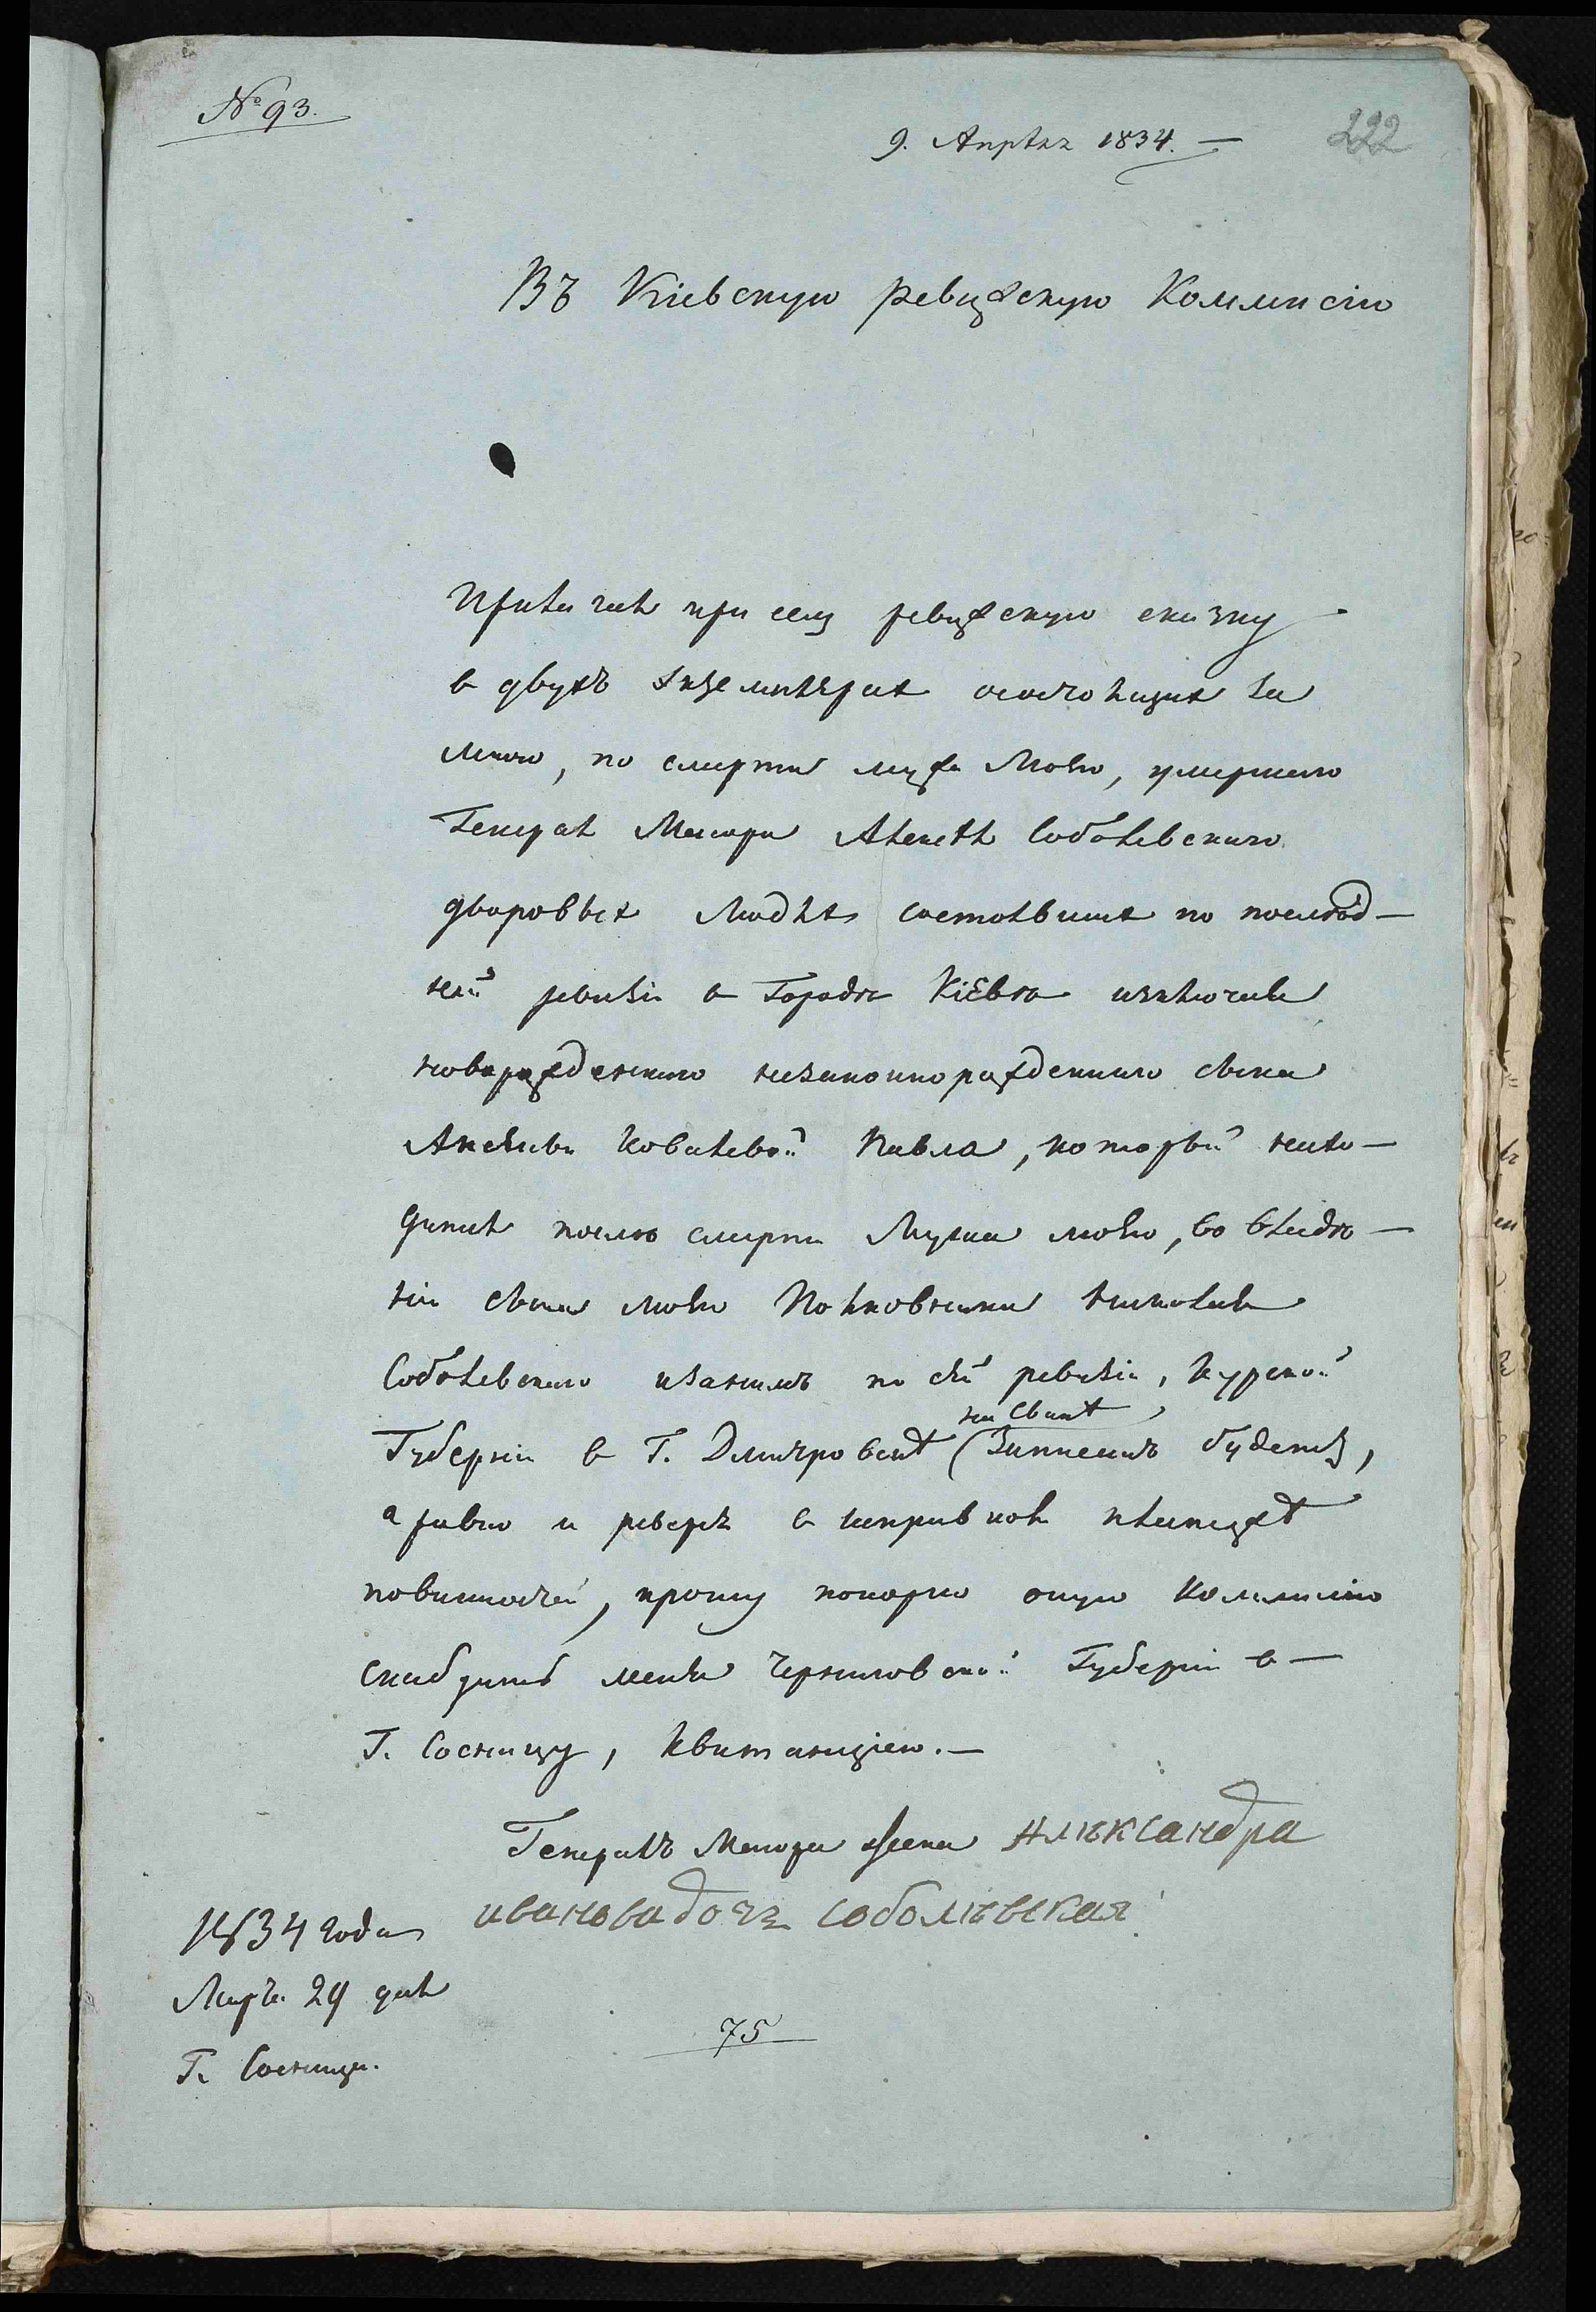 № 93.
9. Апрѣля 1834. —
222
Въ Кіевскую ревизскую Коммисію
Прилагая при семъ ревизскую сказку
в двухъ екземплярах состоящих за
мною, по смерти мужа Моего, умершаго
Генерал Маиора Алексѣя Соболевскаго
дворовых людях состоявших по послѣд—
ней ревизіи в Городѣ Кіевѣ изключая
новорожденнаго незаконнорожденнаго сына
Ковалевой Павла, который нахо—
дится послѣ смерти Мужа моего, во владѣ—
ніи сына моего Полковника Николая
Соболевскаго и за нимъ по сей ревизіи, Курской
на Свапѣ
Губерніи в Г. Дмитровск (Записанъ будетъ,
а равно и в исправной платеже
повинностей, прошу покорно оную Коммисію
снабдить меня Черниговской Губерніи в—
Г. Сосницу, Квитанціею. —
Генералъ Маиора жена Алѣксандра
иванова дочь соболѣвская
1834 года
Марта 29 дня
Г. Сосница.
75